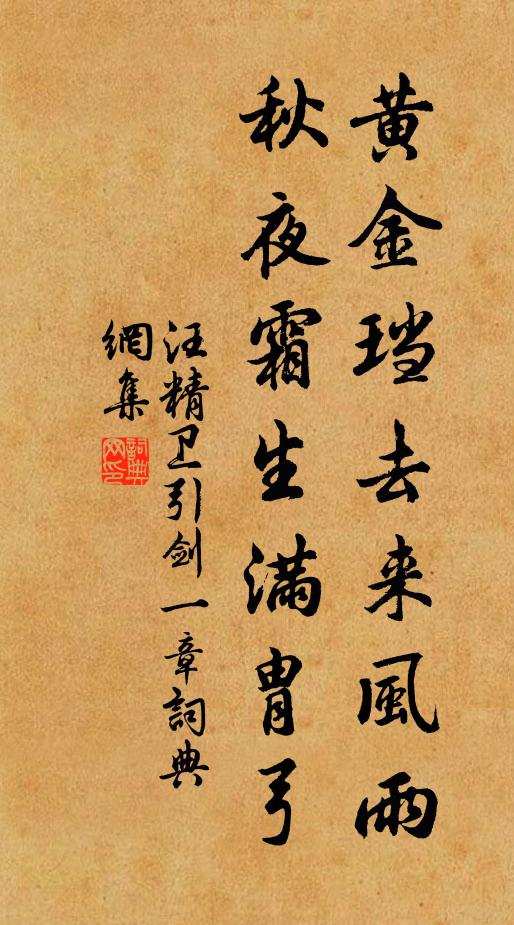 黄金珰去来風雨
秋夜霜生满胄弓
汪精卫引劍一章詞典
網集
詞典
网印